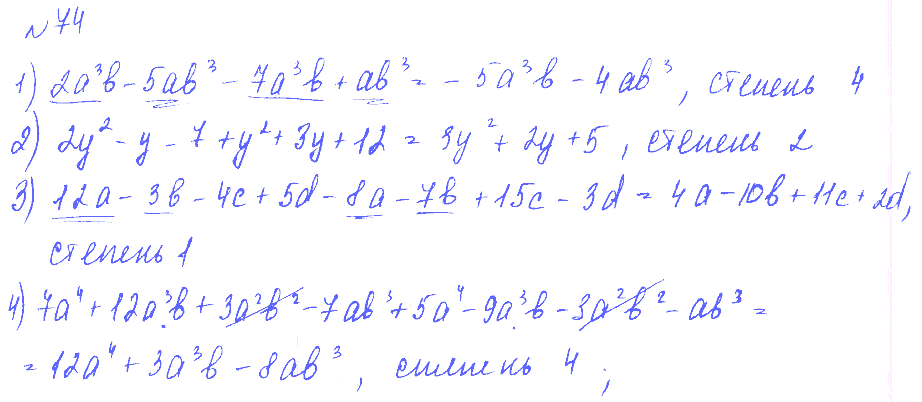 №74
1) 2a³b - 5ab³ - 7a³b + ab³ = - 5a³b - 4ab³, степень 4
2) 2y² - y - 7 + y² + 3y + 12 = 3y² + 2y + 5, степень 2
3) 12a - 3b - 4c + 5d - 8a - 7b + 15c - 3d = 4a - 10b + 11c + 2d,
степень 1
4) 7a⁴ + 12a³b + 3a²b² - 7ab³ + 5a⁴ - 9a³b - 3a²b² - ab³ =
= 12a⁴ + 3a³b - 8ab³, степень 4;